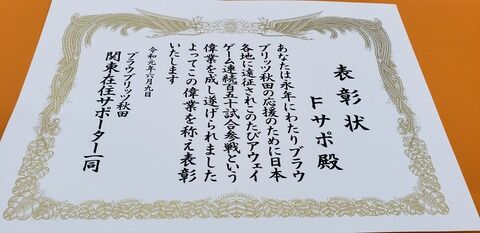 表彰状
Fサポ殿
あなたは永年にわたりブラウ
ブリッツ秋田の応援のために日本
各地に遠征されこのたびアウェイ
ゲーム連続百五十試合参戦という
偉業を成し遂げられました
よってこの偉業を称え表彰
いたします
令和元年六月九日
ブラウブリッツ秋田
関東在住サポーター一同